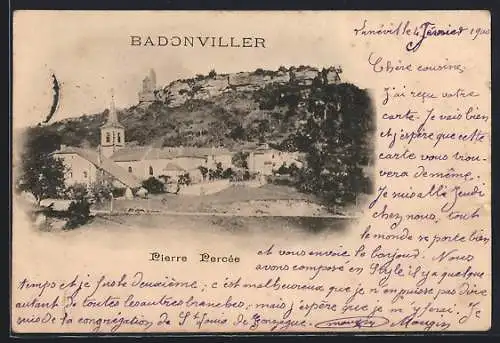 BADONVILLER
Lunéville 4 février 190
Chère cousine,
J'ai reçu votre
carte. Je vais bien
et j'espère que cette
carte vous trou-
vera de même.
Je suis allé Jeudi
chez nous, tout
le monde se porte bien
Pierre Percée
et vous envoie le bonjour. Nous
avons composé en Style il y a quelque
temps et je suis deuxième; c'est malheureux que je n'en puisse pas dire
autant de toutes les autres branches; mais j'espère que je m'y ferai. Je
suis de la congrégation de St Louis de Gonzague. Mougin